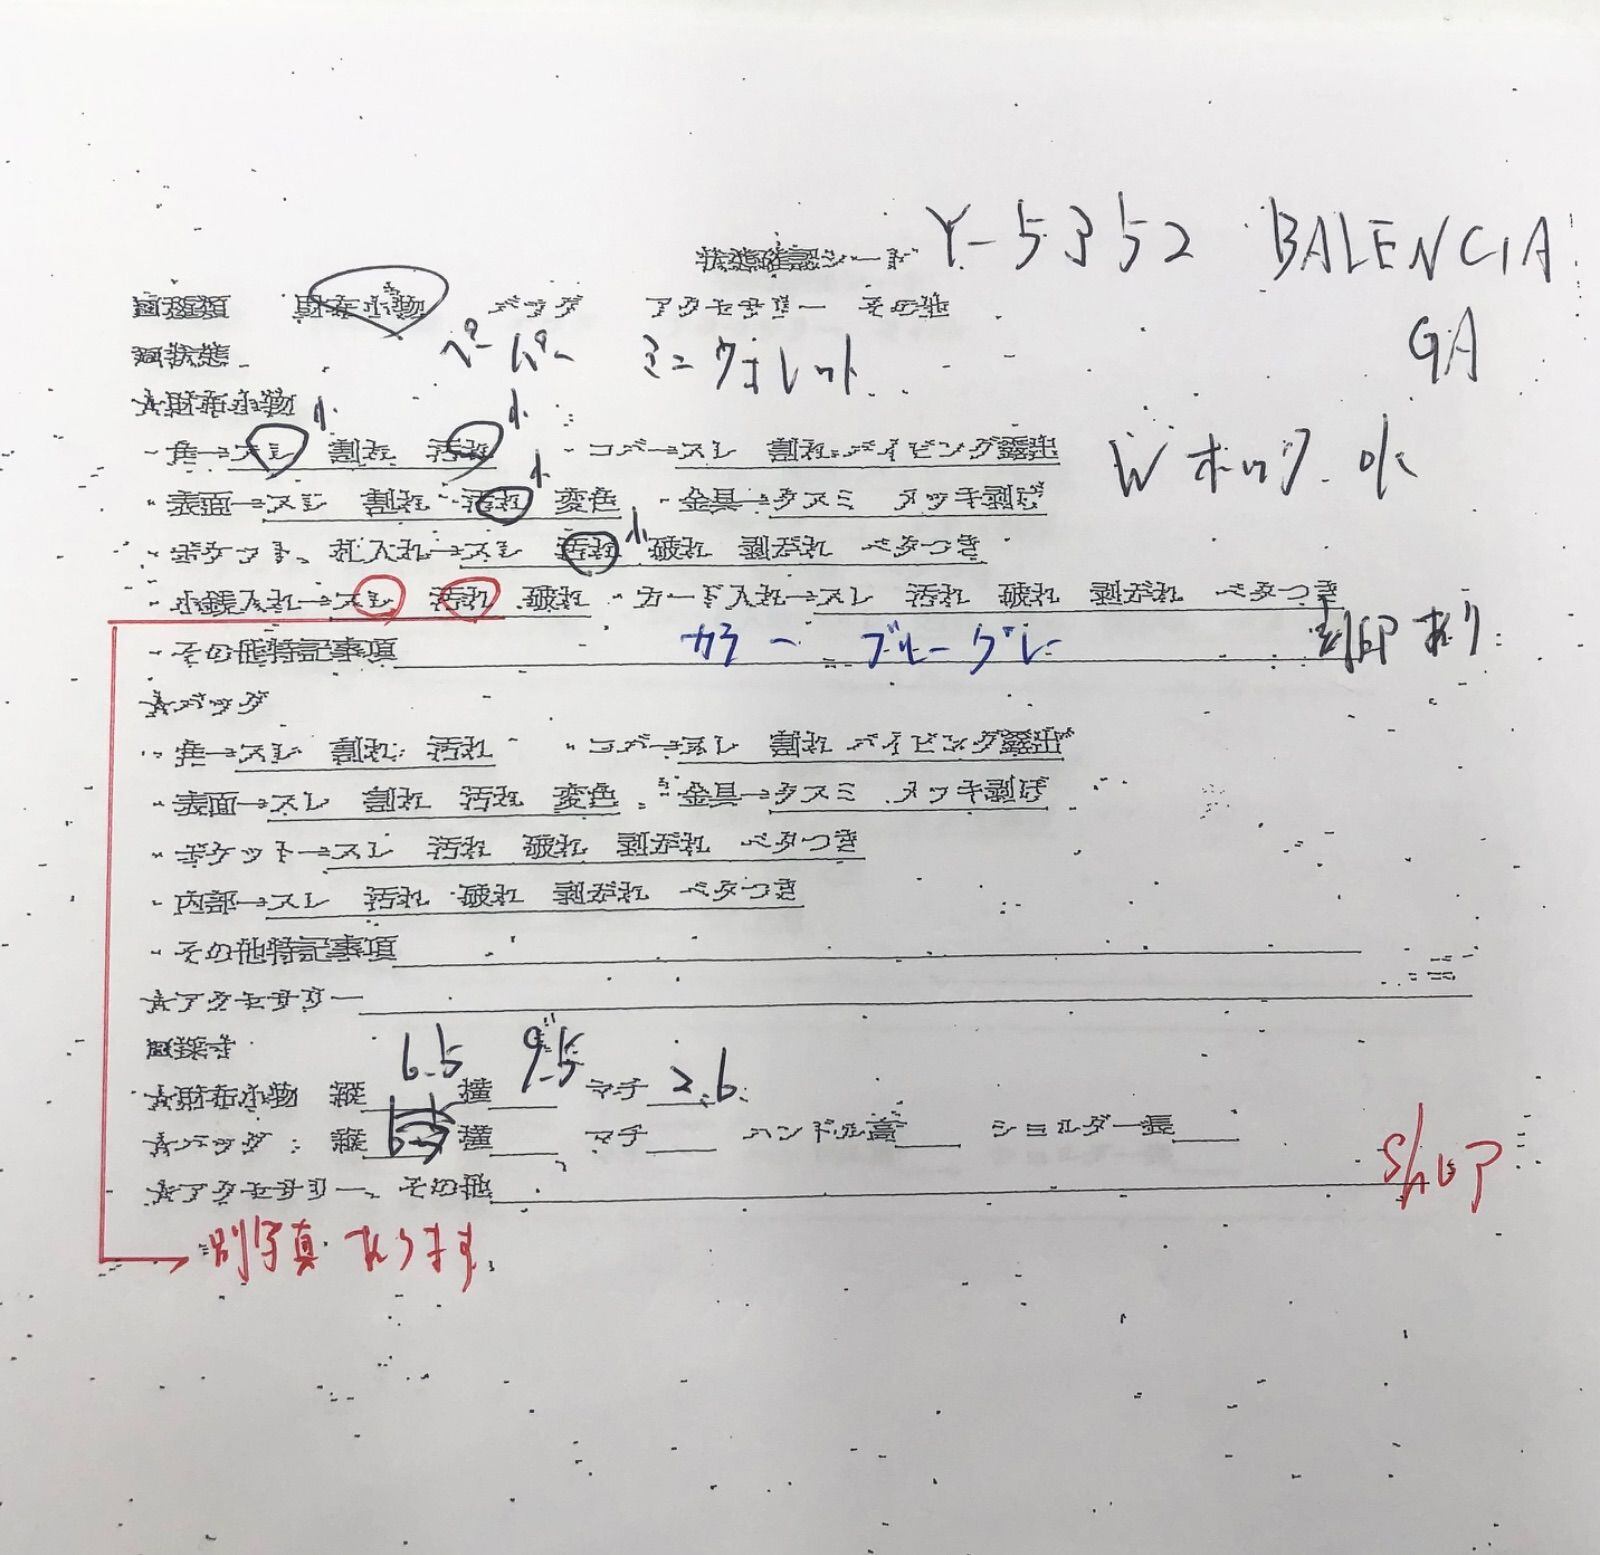 状態確認シート Y-5352 BALENCIA
GA
種類 財布小物 バッグ アクセサリー その他
状態 ペーパー ミニウォレット
☆財布小物 小 小
・角→スレ 割れ 汚れ ・コバ→スレ 割れ パイピング露出 Wホック 小
・表面→スレ 割れ 汚れ 小 変色 ・金具→クスミ メッキ剥げ
・ポケット、札入れ→スレ 汚れ 小 破れ 剥がれ ベタつき
・小銭入れ→スレ 汚れ 破れ ・カード入れ→スレ 汚れ 破れ 剥がれ ベタつき
・その他特記事項 カラー ブルーグレー 刻印あり
☆バッグ
・角→スレ 割れ 汚れ ・コバ→スレ 割れ パイピング露出
・表面→スレ 割れ 汚れ 変色 ・金具→クスミ メッキ剥げ
・ポケット→スレ 汚れ 破れ 剥がれ ベタつき
・内部→スレ 汚れ 破れ 剥がれ ベタつき
・その他特記事項
☆アクセサリー
採寸
☆財布小物 縦 6.5 横 9.5 マチ 2.6
☆バッグ 縦 横 マチ ハンドル高 ショルダー長
☆アクセサリー、その他
別写真あります